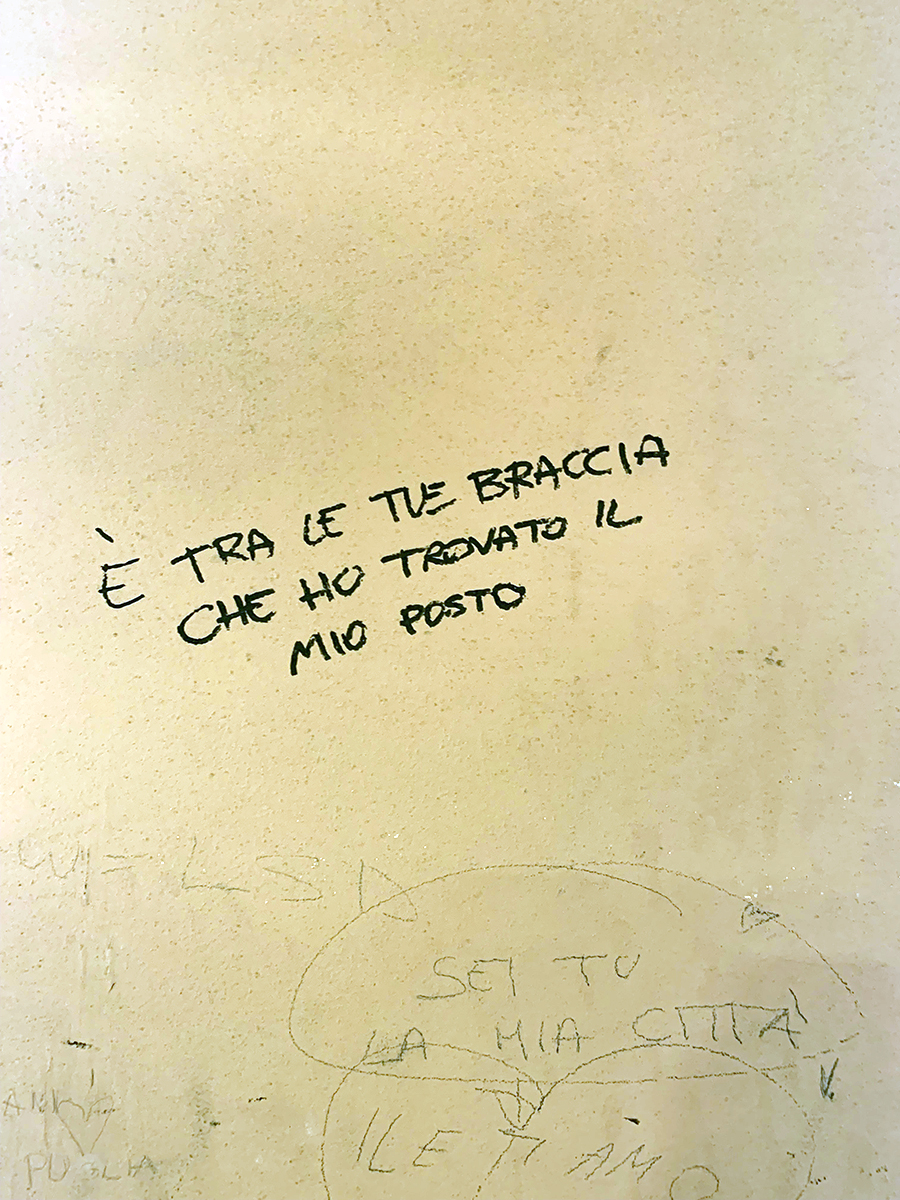 È TRA LE TUE BRACCIA
CHE HO TROVATO IL
MIO POSTO
LSD
SEI TU
LA MIA CITTÀ
ILE TI AMO
PUGLIA